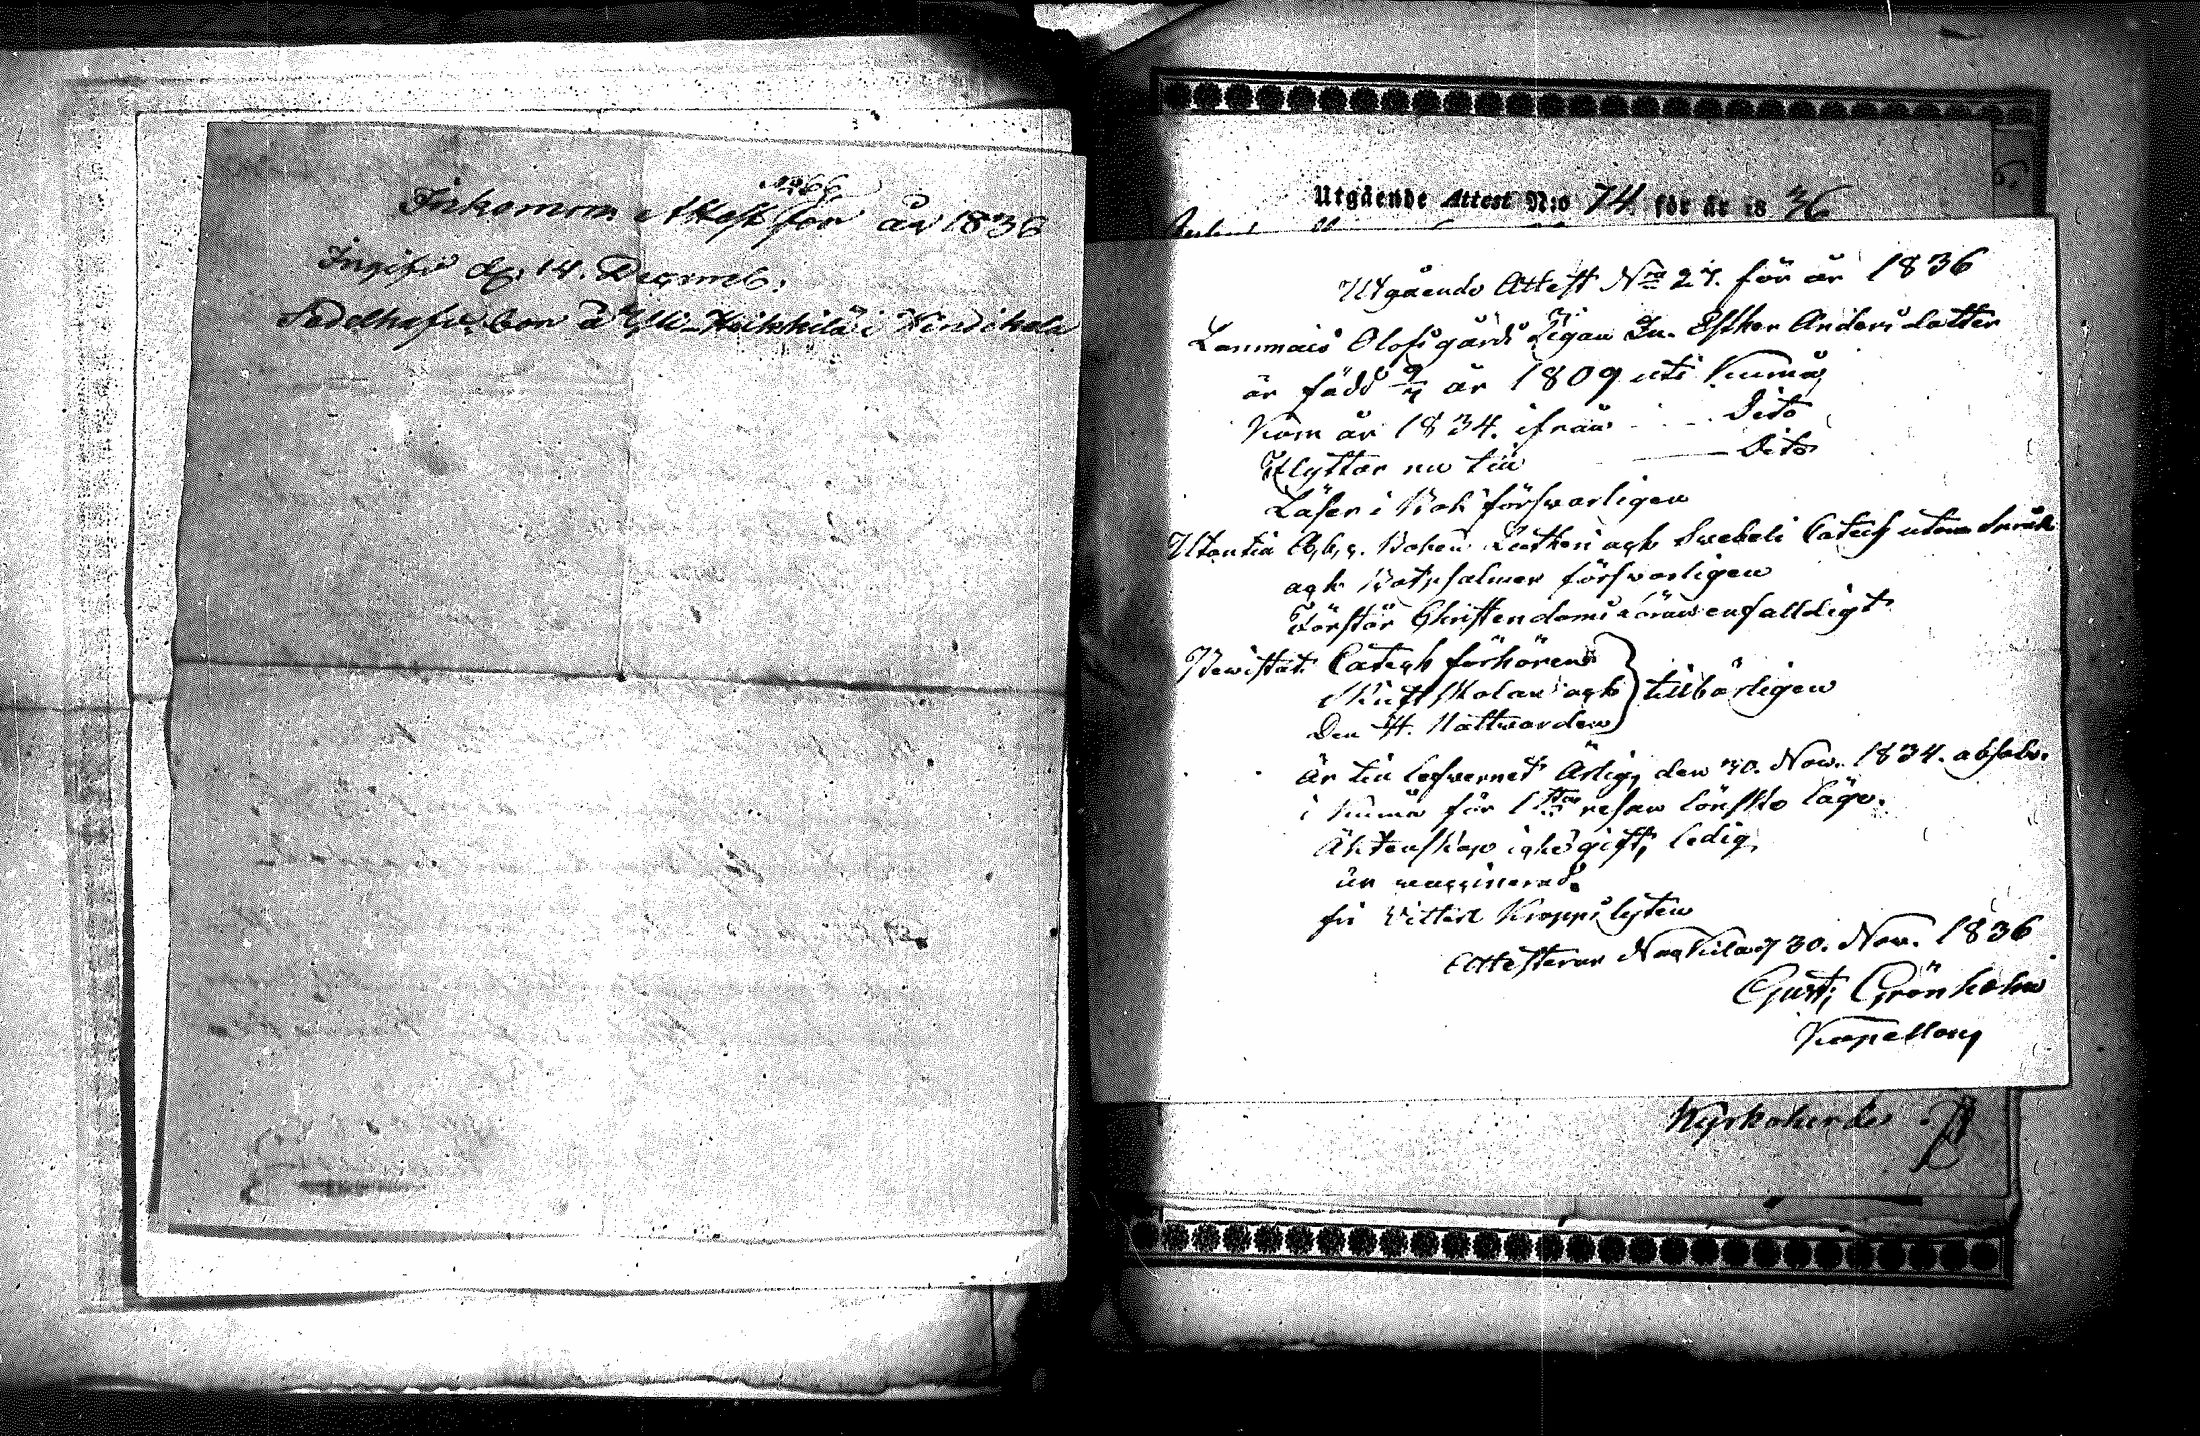 No 66
Inkommen Attest för år 1836
Ingifv. d. 14. Decemb.
Sedelhafv. bor å Yli-Heikkilä i Hindikala
Utgående Attest N:o 74 för år 1836
Utgående Attest No 27. för år 1836
Lammais Olofsgårds Pigan In. Esther Andersdotter
är född 9/4 år 1809 uti Kumå
Kom år 1834. ifrån - - - Dito
Flyttar nu till — Dito
Läser i Bok försvarligen
Utantill A,b,c. Boken Lutheri och Svebeli Catech utom
och Botpsalmer försvarligen
Förstår Christendoms läran enfalldigt
Bevistat Catech förhören
Skriftskolan och } tillbörligen
Den H. Nattvarden
Är till lefvernet Ärlig, den 30. Nov. 1834. absolv.
i Kumå för 1sta resan lönsko läge.
Äktenskap icke gift, ledig
är vaccinerad.
fri Kropps lyten
Attesterar Nakkila d 30. Nov. 1836
Gust; Grönholm
Kapellan
Kyrkoherde